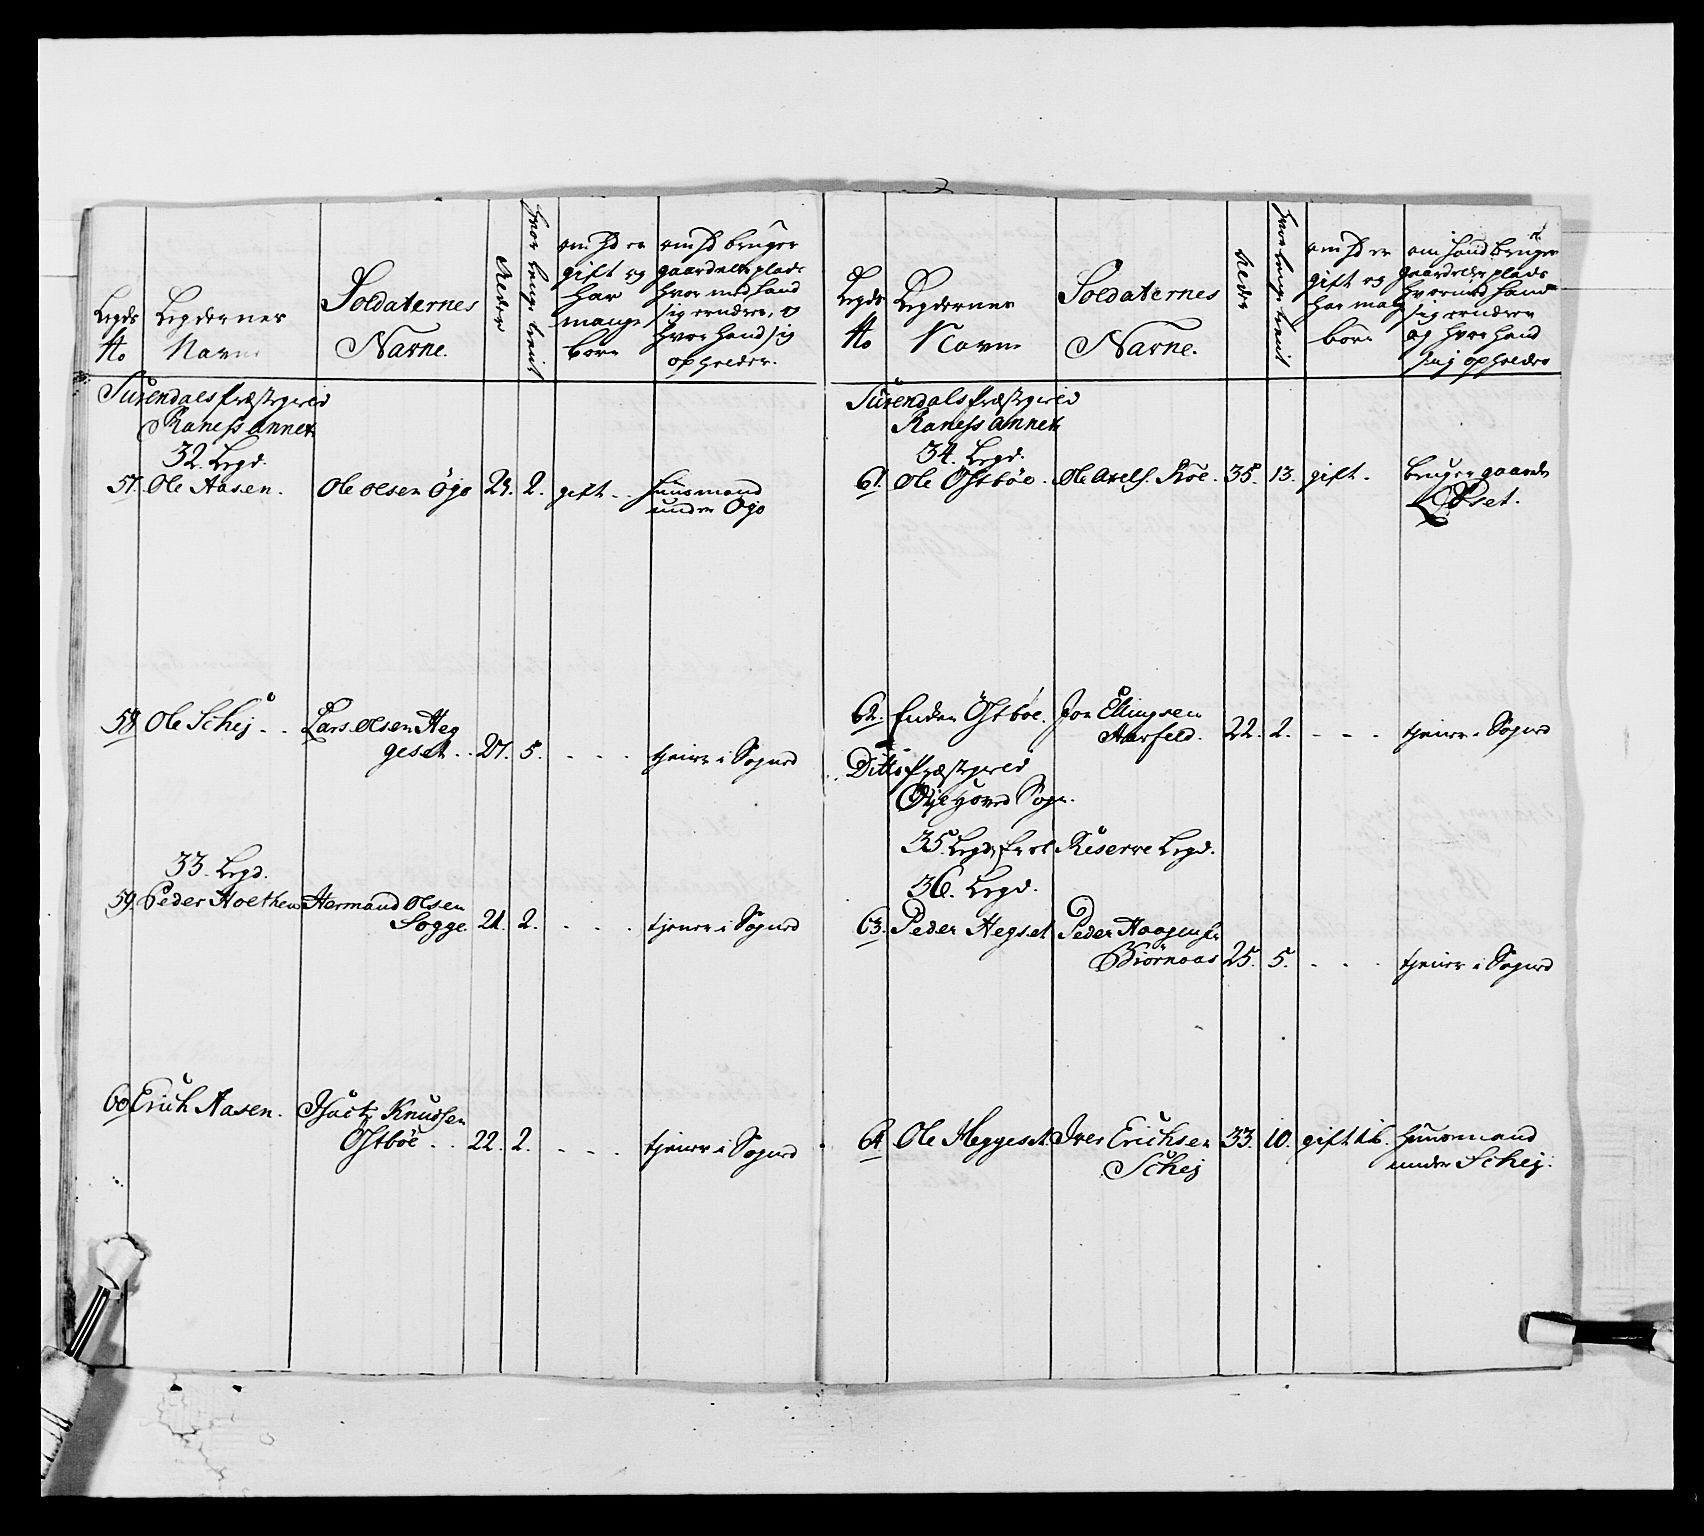 Legds
No
Legdernes
Navne
Soldaternes
Navne.
Alder
hvor lenge tient
om hand er
gift og
har
mange
born
om hd bruger
gaard eller plads
hvor med hand
sig ernærer, og
hvor hand sig
opholder.
Surendals Præstegield
Raness annex
32. Legd.
57. Ole Aasen. Ole Olsen Ögo 2. gift . . huusmand
under Ögo
58 Ole Schej . . Lars Olsen Heg
geset . . 27. 5. - - - tiener i Sognet
33. Legd.
59. Peder Holthen Hermand Olsen
Sogge 21. 2. - - - tiener i Sognet
60 Erich Aasen. Isack Knudsen
Östböe . . 22. 2. - - - tiener i Sognet
Legds
No
Legdernes
Navne
Soldaternes
Navne.
Alder
hvor lenge tient
om hd er
gift og
har mang
born
om hand bruger
gaard eller plads
hvormed hand
sig ernærer
og hvor hand
sig opholder
Surendals Præstegield
Raness annex
34. Legd.
61. Ole Östböe. Ole Axels. Röe. 35. 13. gift. bruger gaarden
Öset.
62. Ender Östböe. Jon Ellingsen
Aarfeld. 22. 2. - - - tiener i Sognet
Ditto Præstegield
Öye hoved Sogn.
35. Legd, Reserve Legd.
36. Legd.
63. Peder Hegset Peder Haagens:
Biörnaas 25. 5. - - - tiener i Sognet
64 Ole Heggeset Iver Erichsen 33. 10. gift 1 b. huusmand
Schej under Schej.